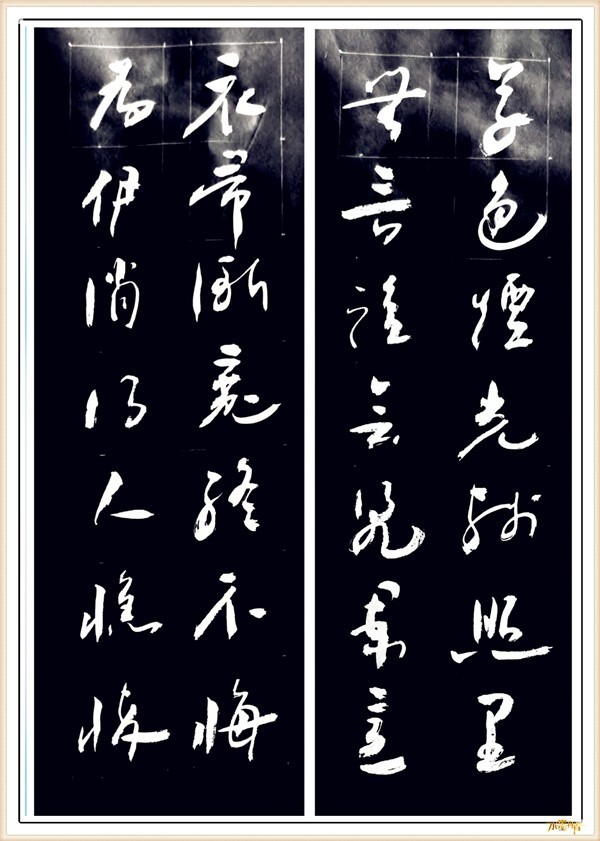 草色煙光殘照里
無言誰会凭闌意
衣帶漸寬終不悔
为伊消得人憔悴